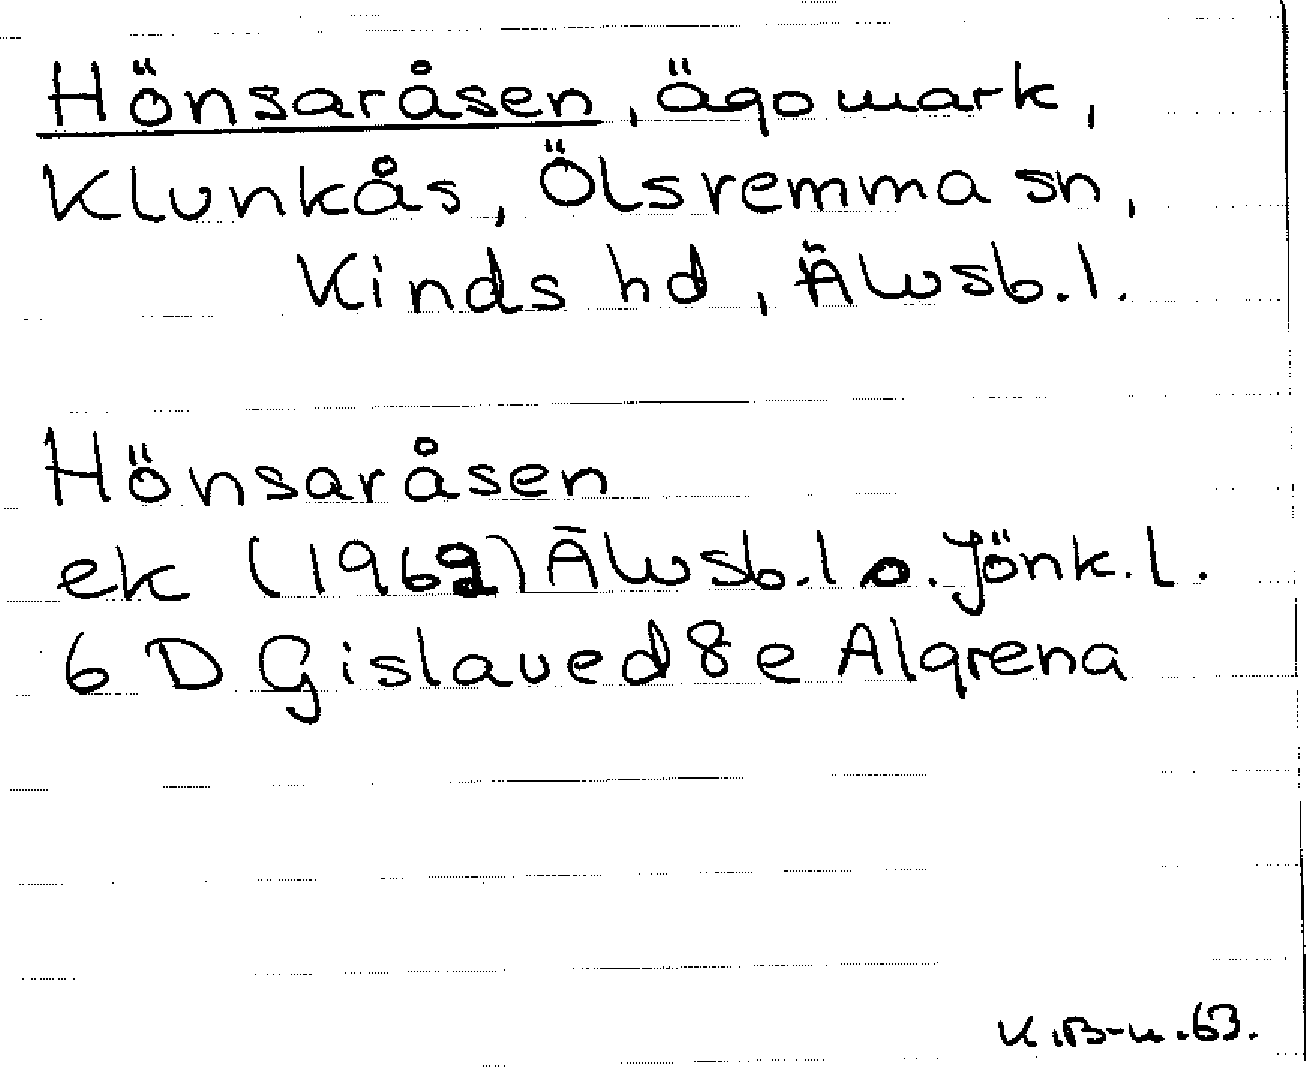 Hönsaråsen, ägomark,
Klunkås, Ölsremma sn,
Kinds hd, Älvsb.l.
Hönsaråsen
ek (1962) Älvsb.l o. Jönk.l.
6 D Gislaved 8 e Algrena
K.B-n.63.